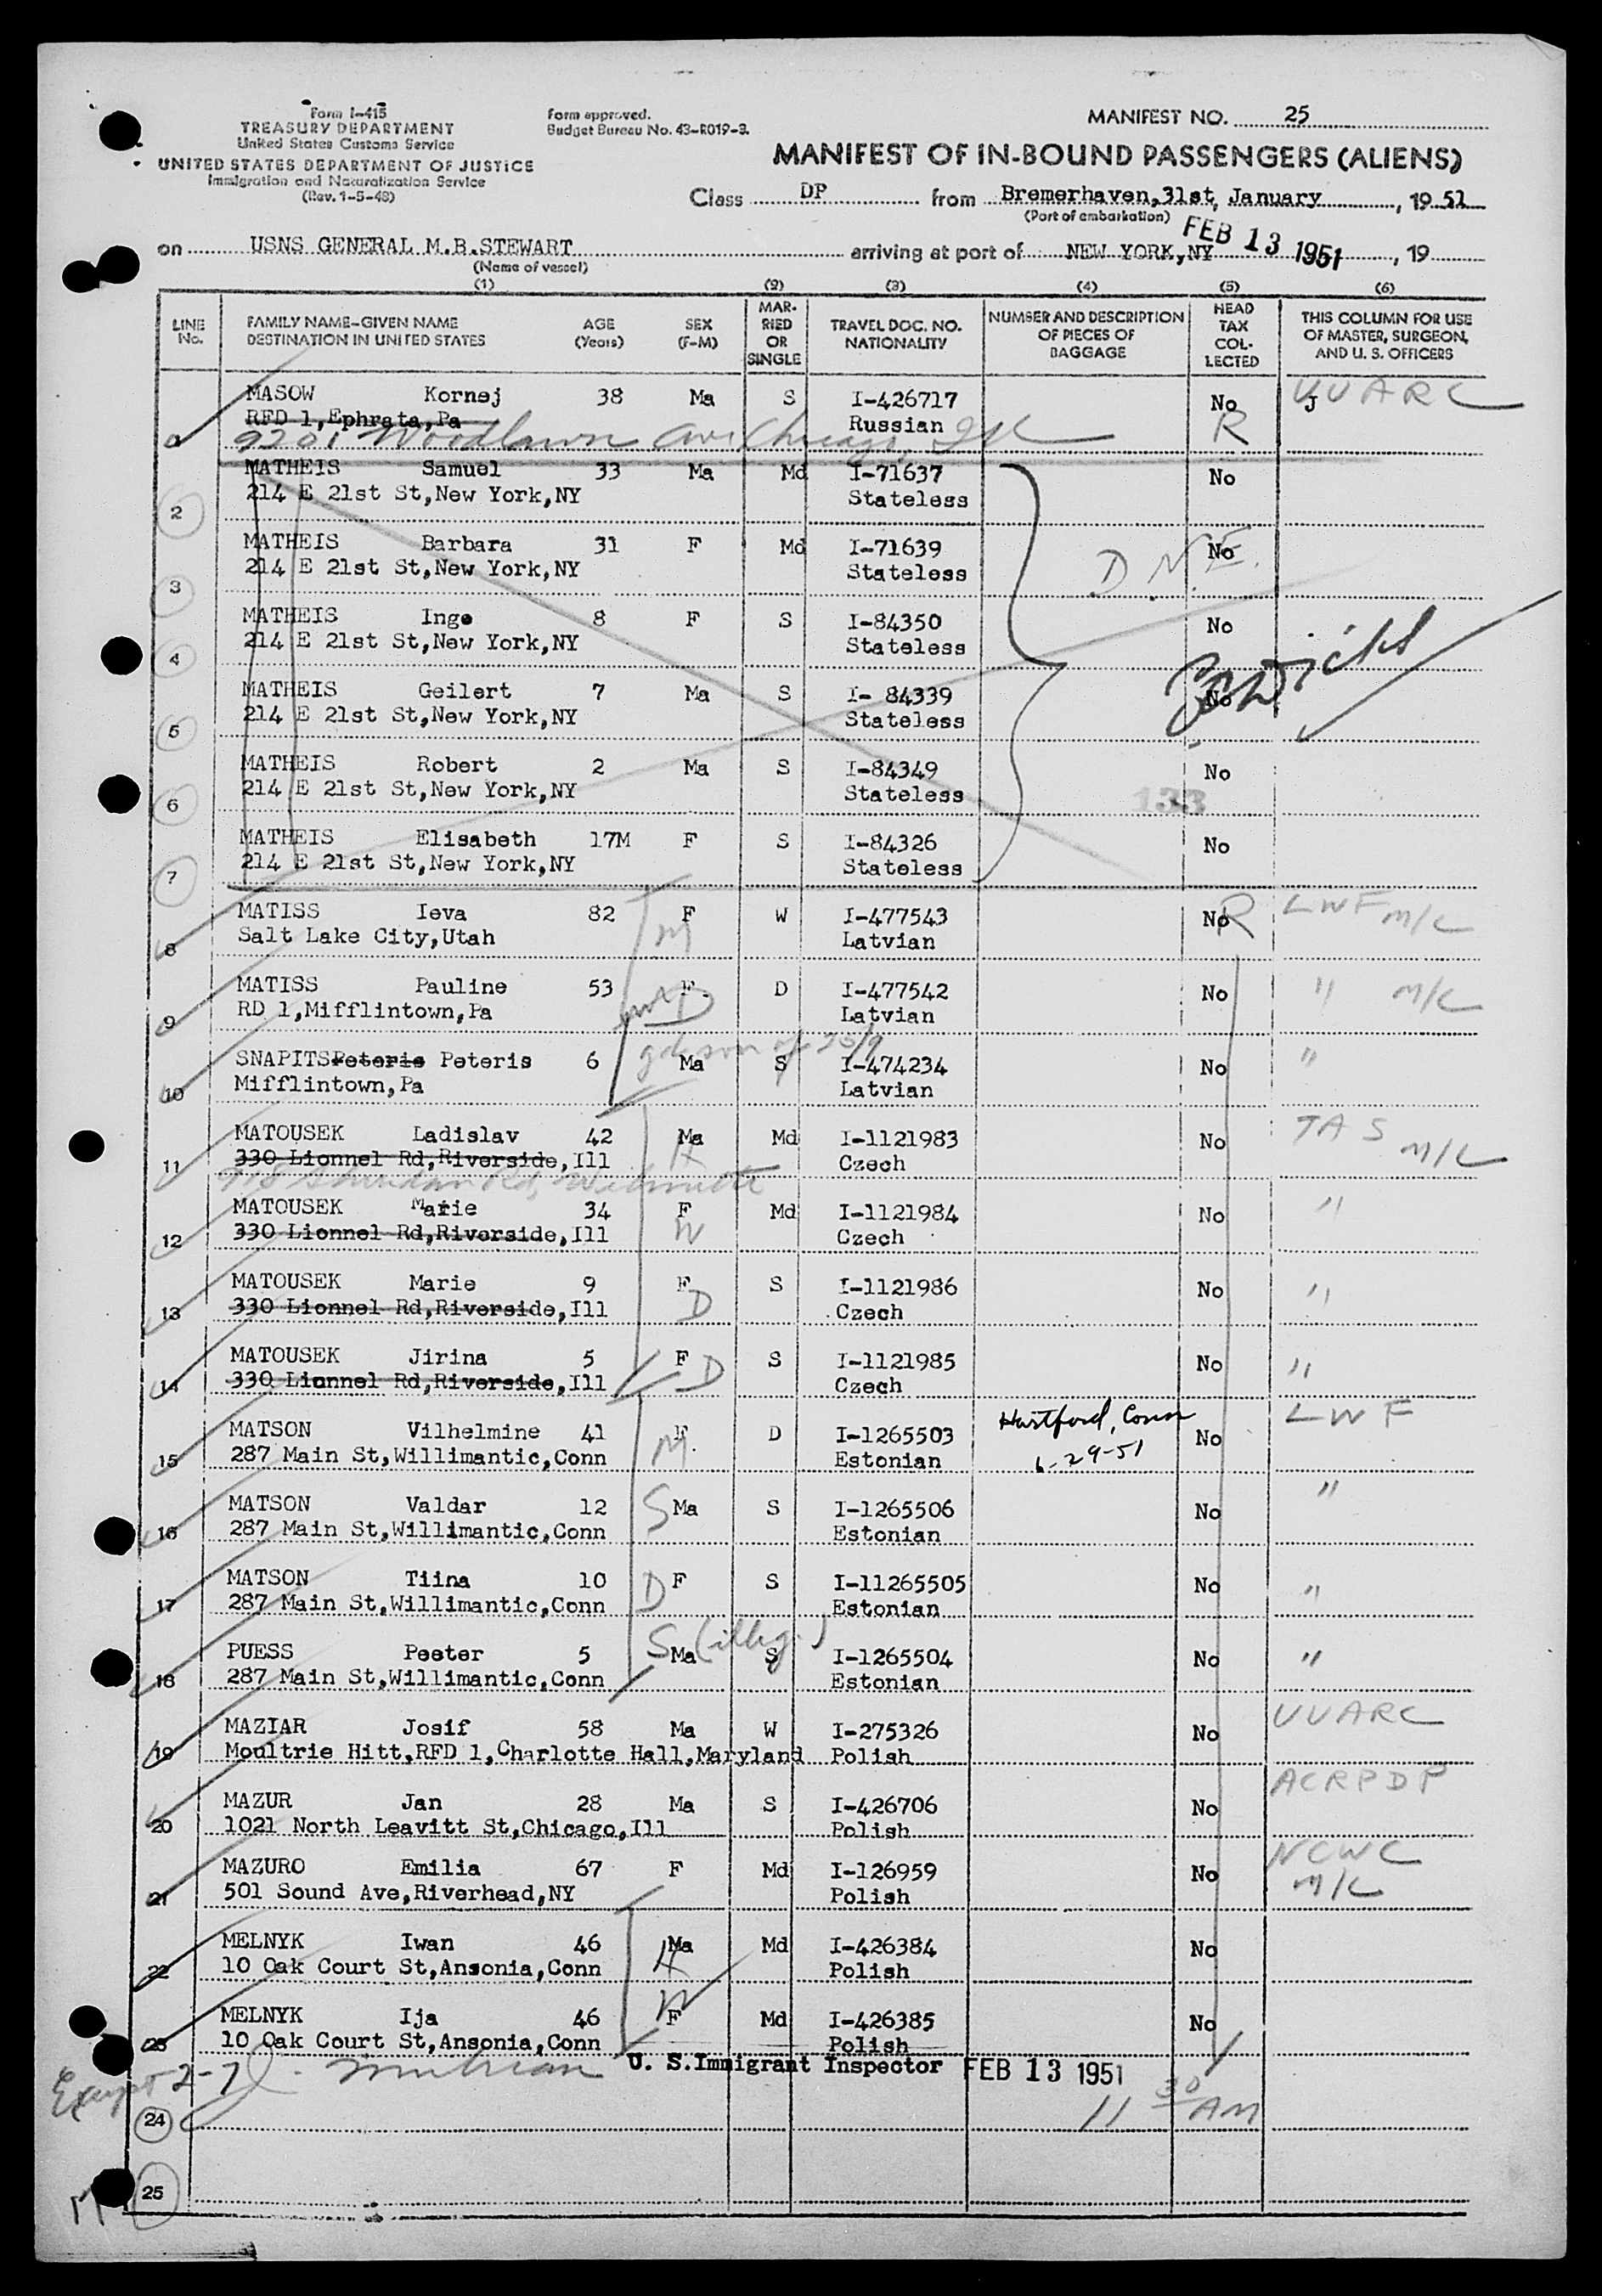 Form I-415
TREASURY DEPARTMENT
United States Customs Service
UNITED STATES DEPARTMENT OF JUSTICE
Immigration and Naturalization Service
(Rev. 1-5-48)
Form approved.
Budget Bureau No. 43-R019-3.
MANIFEST NO. 25
MANIFEST OF IN-BOUND PASSENGERS (ALIENS)
Class DP from Bremerhaven, 31st, January, 1951
(Port of embarkation)
on USNS GENERAL M.B.STEWART arriving at port of NEW YORK, NY FEB 13 1951, 19
(Name of vessel)
(1) (2) (3) (4) (5) (6)
LINE No. FAMILY NAME-GIVEN NAME DESTINATION IN UNITED STATES AGE (Years) SEX (F-M) MARRIED OR SINGLE TRAVEL DOC. NO. NATIONALITY NUMBER AND DESCRIPTION OF PIECES OF BAGGAGE HEAD TAX COLLECTED THIS COLUMN FOR USE OF MASTER, SURGEON, AND U. S. OFFICERS
MASOW Kornej 38 Ma S I-426717 No J UUARC
RFD 1,Ephrata,Pa Russian R
9201 Woodlawn Ave Chicago, Ill
MATHEIS Samuel 33 Ma Md I-71637 No
2 214 E 21st St,New York,NY Stateless
MATHEIS Barbara 31 F Md I-71639 No
3 214 E 21st St,New York,NY Stateless
D.N.E.
MATHEIS Inge 8 F S I-84350 No
4 214 E 21st St,New York,NY Stateless
MATHEIS Geilert 7 Ma S I- 84339 No
5 214 E 21st St,New York,NY Stateless
MATHEIS Robert 2 Ma S I-84349 No
6 214 E 21st St,New York,NY Stateless 133
MATHEIS Elisabeth 17M F S I-84326 No
7 214 E 21st St,New York,NY Stateless
MATISS Ieva 82 F W I-477543 No R LWF M/C
8 Salt Lake City,Utah M Latvian
MATISS Pauline 53 F. D I-477542 No " M/C
9 RD 1,Mifflintown,Pa D Latvian
SNAPITS Peteris Peteris 6 Ma S I-474234 No "
10 Mifflintown,Pa Latvian
MATOUSEK Ladislav 42 Ma Md I-1121983 No TAS M/C
11 330 Lionnel Rd,Riverside,Ill H Czech
918 Sheridan Rd, Wilmette
MATOUSEK Marie 34 F Md I-1121984 No "
12 330 Lionnel Rd,Riverside,Ill W Czech
MATOUSEK Marie 9 F S I-1121986 No "
13 330 Lionnel Rd,Riverside,Ill D Czech
MATOUSEK Jirina 5 F S I-1121985 No "
14 330 Lionnel Rd,Riverside,Ill D Czech
MATSON Vilhelmine 41 F D I-1265503 Hartford, Conn No LWF
15 287 Main St,Willimantic,Conn M. Estonian 6-29-51
MATSON Valdar 12 S Ma S I-1265506 No "
16 287 Main St,Willimantic,Conn Estonian
MATSON Tiina 10 D F S I-11265505 No "
17 287 Main St,Willimantic,Conn Estonian
PUESS Peeter 5 S (illeg.) Ma S I-1265504 No "
18 287 Main St,Willimantic,Conn Estonian
MAZIAR Josif 58 Ma W I-275326 No UUARC
19 Moultrie Hitt,RFD 1,Charlotte Hall,Maryland Polish
MAZUR Jan 28 Ma S I-426706 No ACRPDP
20 1021 North Leavitt St,Chicago,Ill Polish
MAZURO Emilia 67 F Md I-126959 No NCWC
21 501 Sound Ave,Riverhead,NY Polish M/C
MELNYK Iwan 46 Ma Md I-426384 No
22 10 Oak Court St,Ansonia,Conn H Polish
MELNYK Ija 46 F Md I-426385 No
23 10 Oak Court St,Ansonia,Conn W Polish
Except 2-7 U. S. Immigrant Inspector FEB 13 1951
24 11 30 AM
25